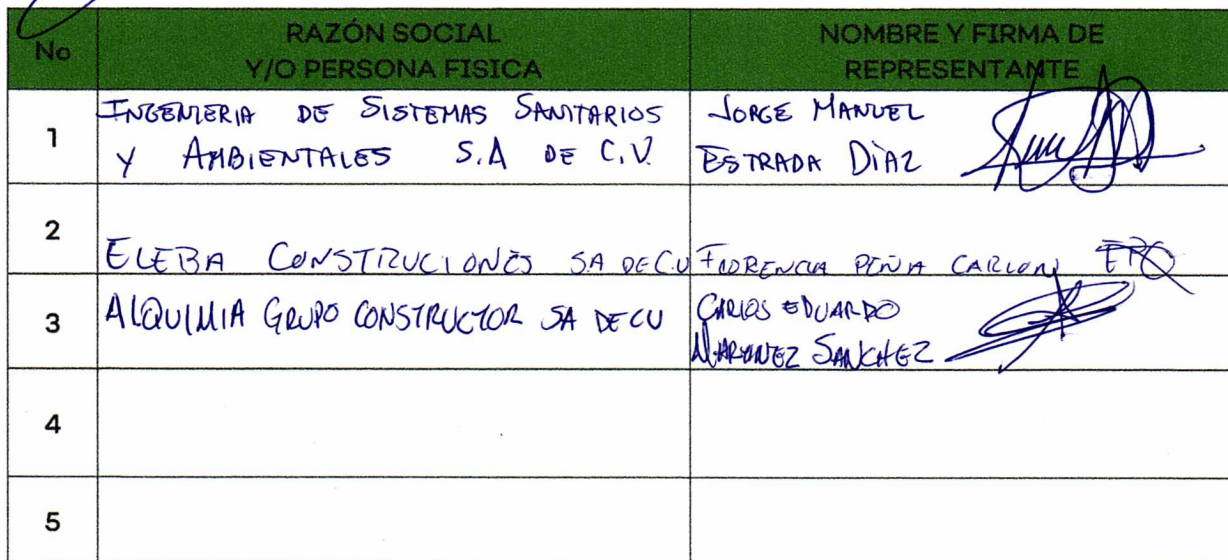 No
RAZÓN SOCIAL
Y/O PERSONA FISICA
NOMBRE Y FIRMA DE
REPRESENTANTE
1
INGENIERIA DE SISTEMAS SANITARIOS
Y AMBIENTALES S.A DE C.V.
JORGE MANUEL
ESTRADA DÌAZ
2
ELEBA CONSTRUCIONES SA DE C.V
FLORENCIA PEÑA
3
ALQUIMIA GRUPO CONSTRUCTOR SA DE CV
CARLOS EDUARDO
MARTINEZ SANCHEZ
4
5